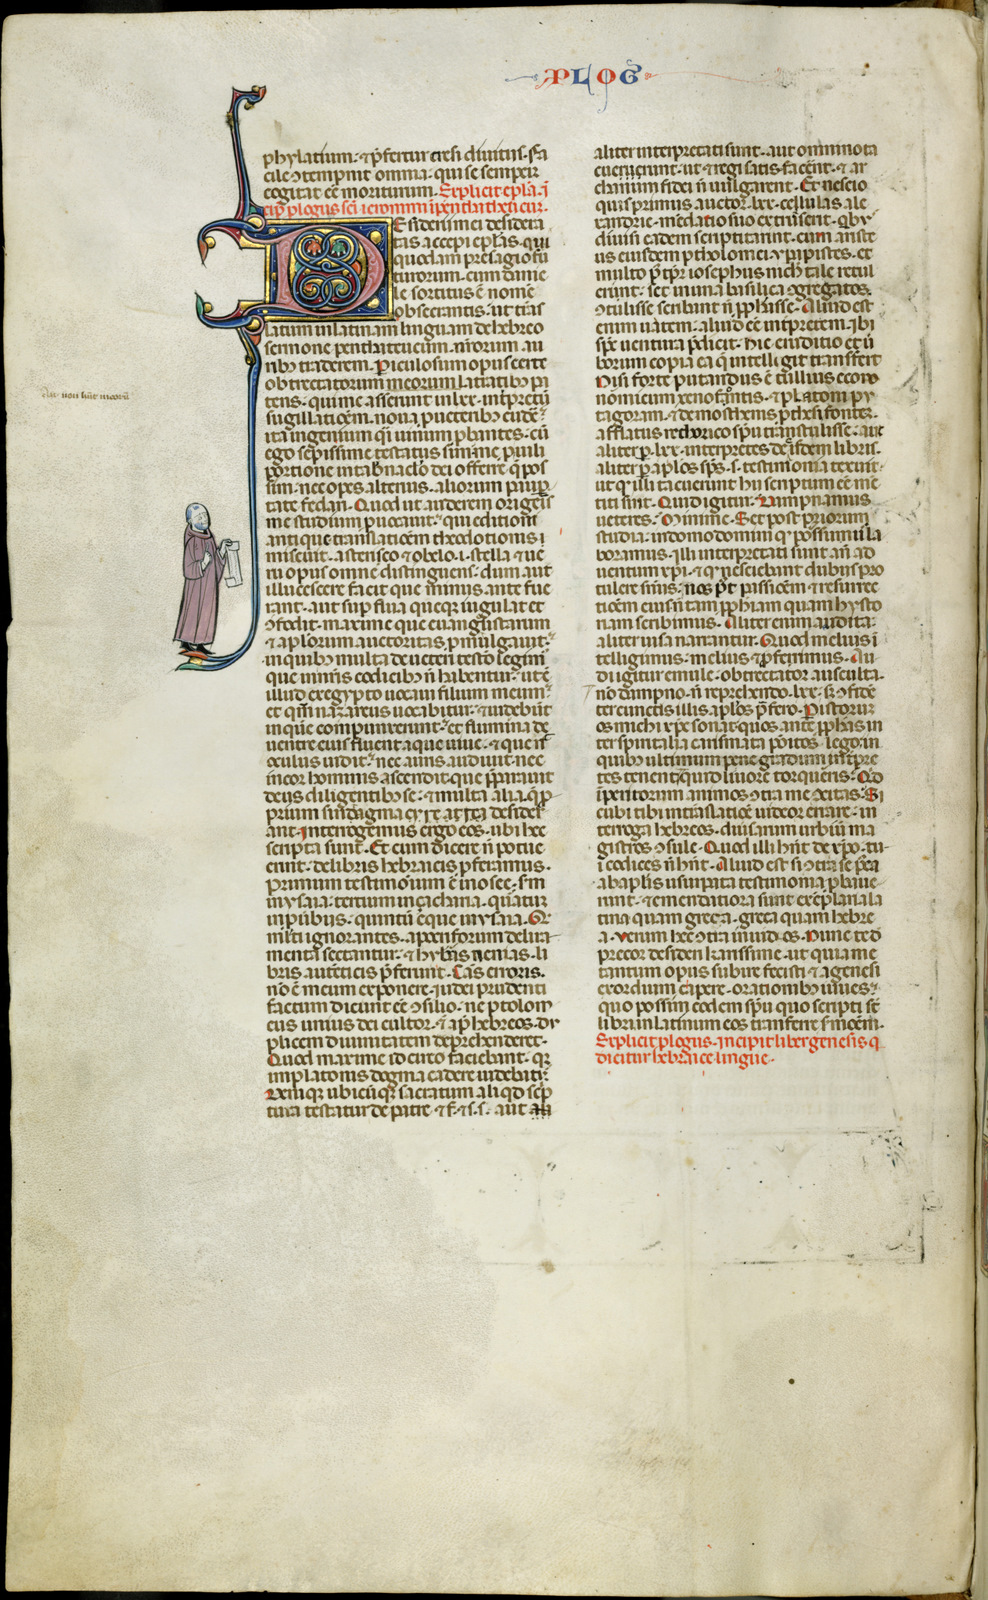 PLOG
phylatium · ⁊ p̄fertur cresi diuitiis · fa
cile ɔtempnit omnia · qui se semper
cogitat eē moriturum · Explicit epl̄a · i
cip̄ plogus sc̄i ieronimi i pentatheucū
Esiderii mei desidera
tas accepi epl̄as · qui
quodam presagio fu
turorum · cum danie
le sortitus ē nomē
obsecrantis · ut trās
latum in latinam linguam de hebreo
sermone penthateucum · nr̄orum au
ribꝫ traderem · Piculosum opus certe
obtrectatorum meorum latratibꝫ pa
tens · qui me asserunt in lxx · int̄pretū
sugillatiōem · noua p ueteribꝫ cudē ·
ita ingenium q̄i uinum p̄bantes · cū
ego sepissime testatus sim · me p uili
portione in tabnaclo dei offerre q̄ pos
sim · nec opes alterius · aliorum paup
tate fedari · Quod ut auderem origeīs
me studium puocauit · qui editioni
antique translatiōem theodotionis
miscuit · asterisco ⁊ obelo · i · stella ⁊ ue
ru opus omne distinguens · dum aut
illucescere facit que minus ante fue
rant · aut supflua queqꝫ iugulat et
ɔfodit · maxime que euangl̄istarum
⁊ apl̄orum auctoritas pmulgauit ·
in quibꝫ multa de ueteri testō legimꝰ
que in nr̄is codicibꝫ n̄ habentur · ut ē
illud ex egypto uocaui filium meum ·
et qm̄ naȝareus uocabitur · ⁊ uidebūt
in quē compunxerunt · et flumina de
uentre eius fluent aque uiue · ⁊ que n̄
oculus uidit · nec auris audiuit · nec
in cor hominis ascendit que p̄parauit
deus diligentibꝫ se · ⁊ multa alia · q̄ p
prium sintagma
ant · Interrogemus ergo eos · ubi hec
scripta sunt · Et cum dicere n̄ potue
erint · de libris hebraicis p̄feramus ·
Primum testimonium ē in osee · sm̄
in ysaia · tertium in çacharia · quartū
in puībijs · quintū eque in ysaia · Qꝰ
m̄lti ignorantes · apocriforum delira
menta sectantur · ⁊ hyb̄as nenias · li
bris autēticis p̄ferunt · Cās erroris ·
nō ē meum exponere · iudei prudenti
factum dicunt eē ɔsilio · ne ptolom
eus unius dei cultor · ⁊ ap̄ hebreos · du
plicem diuinitatem dep̄henderet ·
Quod maxime idcirco faciebant · qꝫ
in platonis dogma cadere uidebatr̄ ·
Deniqꝫ ubicūqꝫ sacratum aliqd sep̄
tura testatur de patre · ⁊ f̄ · ⁊ s · s · aut
aliter interpretati sunt · aut omnino ta
cuerunt · ut ⁊ regi satisfacēnt · ⁊ ar
chanum fidei n̄ uulgarent · Et nescio
quis primus auctor · lxx · cellulas ale
xandrie · mendatio suo extruxerit · qbꝫ
diuisi eadem scriptitarint · cum ariste
us eiusdem ptholomei · et
multo p̄ tp̄r iosephus nich̄ tale retul
erint · set in una basilica ɔgregatos ·
ɔtulisse scribant n̄ pph̄asse · Aliud est
enim uatem · aliud eē int̄pretem · ibi
sp̄c uentura p̄dicit · hic eruditio et ū
borum copia ea q̄ intelligit transfert
Nisi forte putandus ē tullius econo
nomicum xenofontis · ⁊ platoni py
tagoram · ⁊ demosthenis
afflatus rethorico sp̄u transtulisse · aut
aliter p · lxx · interpretes de iisdem libris ·
aliter p apl̄os sp̄s · s · testimonia texuit ·
ut qd̄ illi tacuerunt hii scriptum eē me
titi sint · Quid igitur · Dampnamus
ueteres · Minime · Set post priorum
studia · in domo domini q̄ possumꝰ la
boramus · illi interpretati sunt an̄ ad
uentum xp̄i · ⁊ qd̄ nesciebant dubiis pro
tulere sn̄iis · nos p̄t passiōem ⁊ resurrec
tiōem eius n̄ tam pph̄iam quam hysto
riam scribimus · Aliter enim audita ·
aliter uisa narrantur · Quod melius i
telligimus · melius ⁊ p̄ferimus · Au
di igitur emule · obtrectator ausculta ·
nō dampno · n̄ reprehendo · lxx · s; ɔfidē
ter cunctis illis apl̄os p̄fero · Per istorum
os michi xpc̄ sonat · quos ante pph̄as in
ter spiritalia carismata poītos lego · in
quibꝫ ultimum pene gradum int̄pre
tes tenent · Quid liuore torqueris · Qd̄
īperitorum animos ɔtra me ɔcitas · Si
cubi tibi in trāslatiōe uideor errare · in
terroga hebreos · diūsarum urbiū ma
gistros ɔsule · Quod illi hn̄t de xp̄o · tu
i codices n̄ hn̄t · Aliud est si ɔtra se p̄ea
ab aplis usurpata testimonia pbaue
runt · ⁊ emendatiora sunt exēplaria la
tina quam greca · greca quam hebre
a · Verum hec ɔtra inuidos · Nunc te d
precor desideri karissime · ut quia me
tantum opus subire fecisti ⁊ a genesi
exordium capere · orationibꝫ iuues ·
quo possim eodem sp̄u quo scripti sē
libri in latinum eos transferre sermōem ·
Explicit plogus · incipit liber genesis q
dicitur hebraice lingue ·